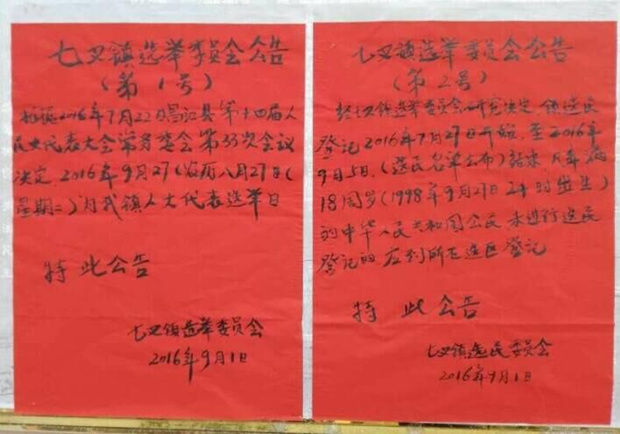 七叉镇选举委员会公告
(第1号)
根据2016年7月22日昌江县第十四届人
民代表大会常务委会第33次会议
决定,2016年9月27(农历八月27日(
星期二)为我镇人大代表选举日
特此公告
七叉镇选举委员会
2016年9月1日
七叉镇选举委员会公告
(第2号)
经七叉镇选举委员会研究决定,镇选民
登记2016年7月27日开始,至2016年
9月5日,(选民名单公布)结束,凡年满
18周岁(1998年9月27日24时出生)
的中华人民共和国公民,未进行选民
登记的,应到所在选区登记
特此公告
七叉镇选民委员会
2016年9月1日